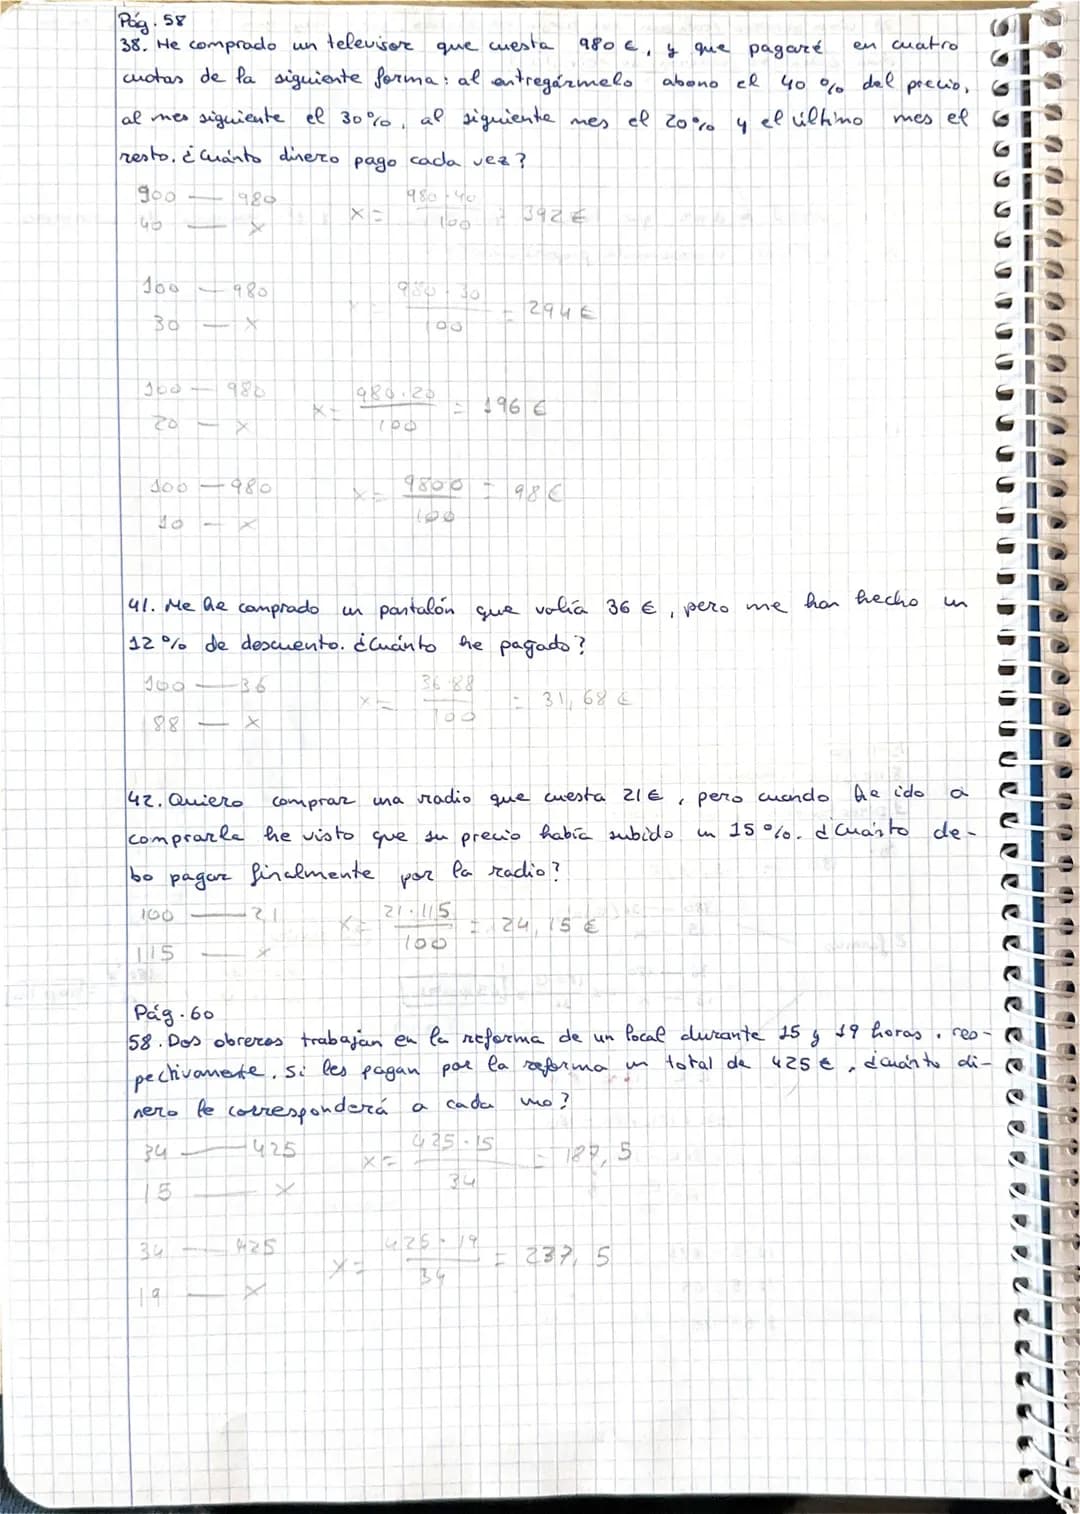 Pág. 58
38. He comprado un televisor que cuesta 980 €, y que pagaré en cuatro
cuotas de la siguiente forma: al entregármelo abono el 40 % del precio,
al mes siguiente el 30%, al siguiente mes el 20% y el último mes el
resto. ¿Cuánto dinero pago cada vez?
100 — 980 x = 980·40 / 100 = 392 €
40 — x
100 — 980 x = 980·30 / 100 = 294 €
30 — x
100 — 980 x = 980·20 / 100 = 196 €
20 — x
100 — 980 x = 9800 / 100 = 98 €
10 — x
41. Me he comprado un pantalón que valía 36 €, pero me han hecho un
12 % de descuento. ¿Cuánto he pagado?
100 — 36 x = 36·88 / 100 = 31,68 €
88 — x
42. Quiero comprar una radio que cuesta 21 €, pero cuando he ido a
comprarla he visto que su precio había subido un 15 %. ¿Cuánto de-
bo pagar finalmente por la radio?
100 — 21 x = 21·115 / 100 = 24,15 €
115 — x
Pág. 60
58. Dos obreros trabajan en la reforma de un local durante 15 y 19 horas, res-
pectivamente. Si les pagan por la reforma un total de 425 €, ¿cuánto di-
nero le corresponderá a cada uno?
34 — 425 x = 425·15 / 34 = 187,5
15 — x
34 — 425 x = 425·19 / 34 = 237,5
19 — x